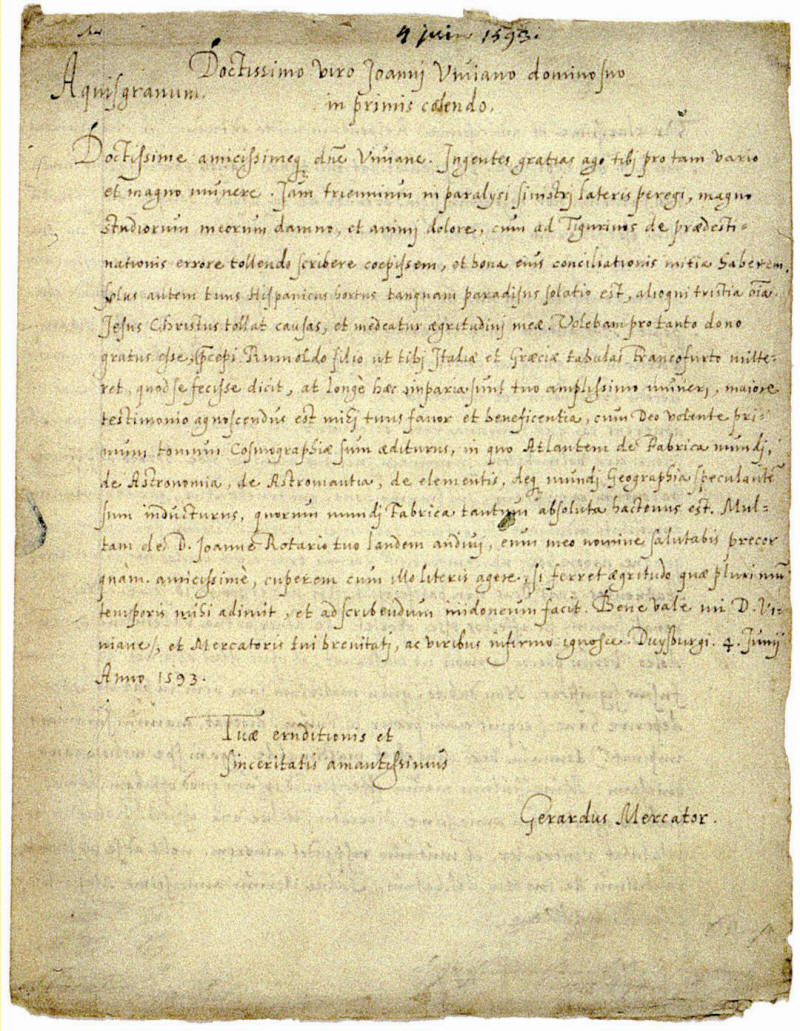 4 juin 1593.
Doctissimo viro Joannj Viviano domino suo
Aquisgranum.
in primis colendo.
Doctissime amicissimeq dne Viviane. Ingentes gratias ago tibj pro tam vario
et magno munere. Jam triennium in paralysi sinistrj lateris peregi, magno
studiorum meorum damno, et animj dolore, cum ad Tigurinos de prædesti-
nationis errore tollendo scribere coepissem, et bona eius conciliationis initia haberem,
solus autem tuus Hispanicus hortus tanquam paradisus solatio est, alioqui tristia oia.
Jesus Christus tollat causas, et medeatur ægritudinj meæ. Volebam pro tanto dono
gratus esse, Rumoldo filio ut tibj Italiæ et Græciæ tabulas francofurto mitte-
ret, quod se fecisse dicit, at longè hæc imparia sunt tuo amplissimo munerj, maiore
testimonio agnoscendus est mihj tuus favor et beneficentia, cum Deo volente pri-
mum tomum Cosmographiæ sum æditurus, in quo Atlantem de Fabrica mundj,
de Astronomia, de Astromantia, de elementis, deq mundj Geographia speculantē
sum inducturus, quorum mundj Fabrica tantum absoluta hactenus est. Mul-
tam de D. Joanne Rotario tuo laudem audivj, eum meo nomine salutabis precor
quàm amicissimè, cuperem cum illo literis agere, si ferret ægritudo quæ plurimū
temporis mihi adimit, et ad scribendum inidoneum facit. Bene vale mi D. Vi-
viane, et Mercatoris tui brevitatj, ac viribus infirmo ignosce. Duysburgi. 4. Junij
Anno 1593.
Tuæ eruditionis et
sinceritatis amantissimus
Gerardus Mercator.